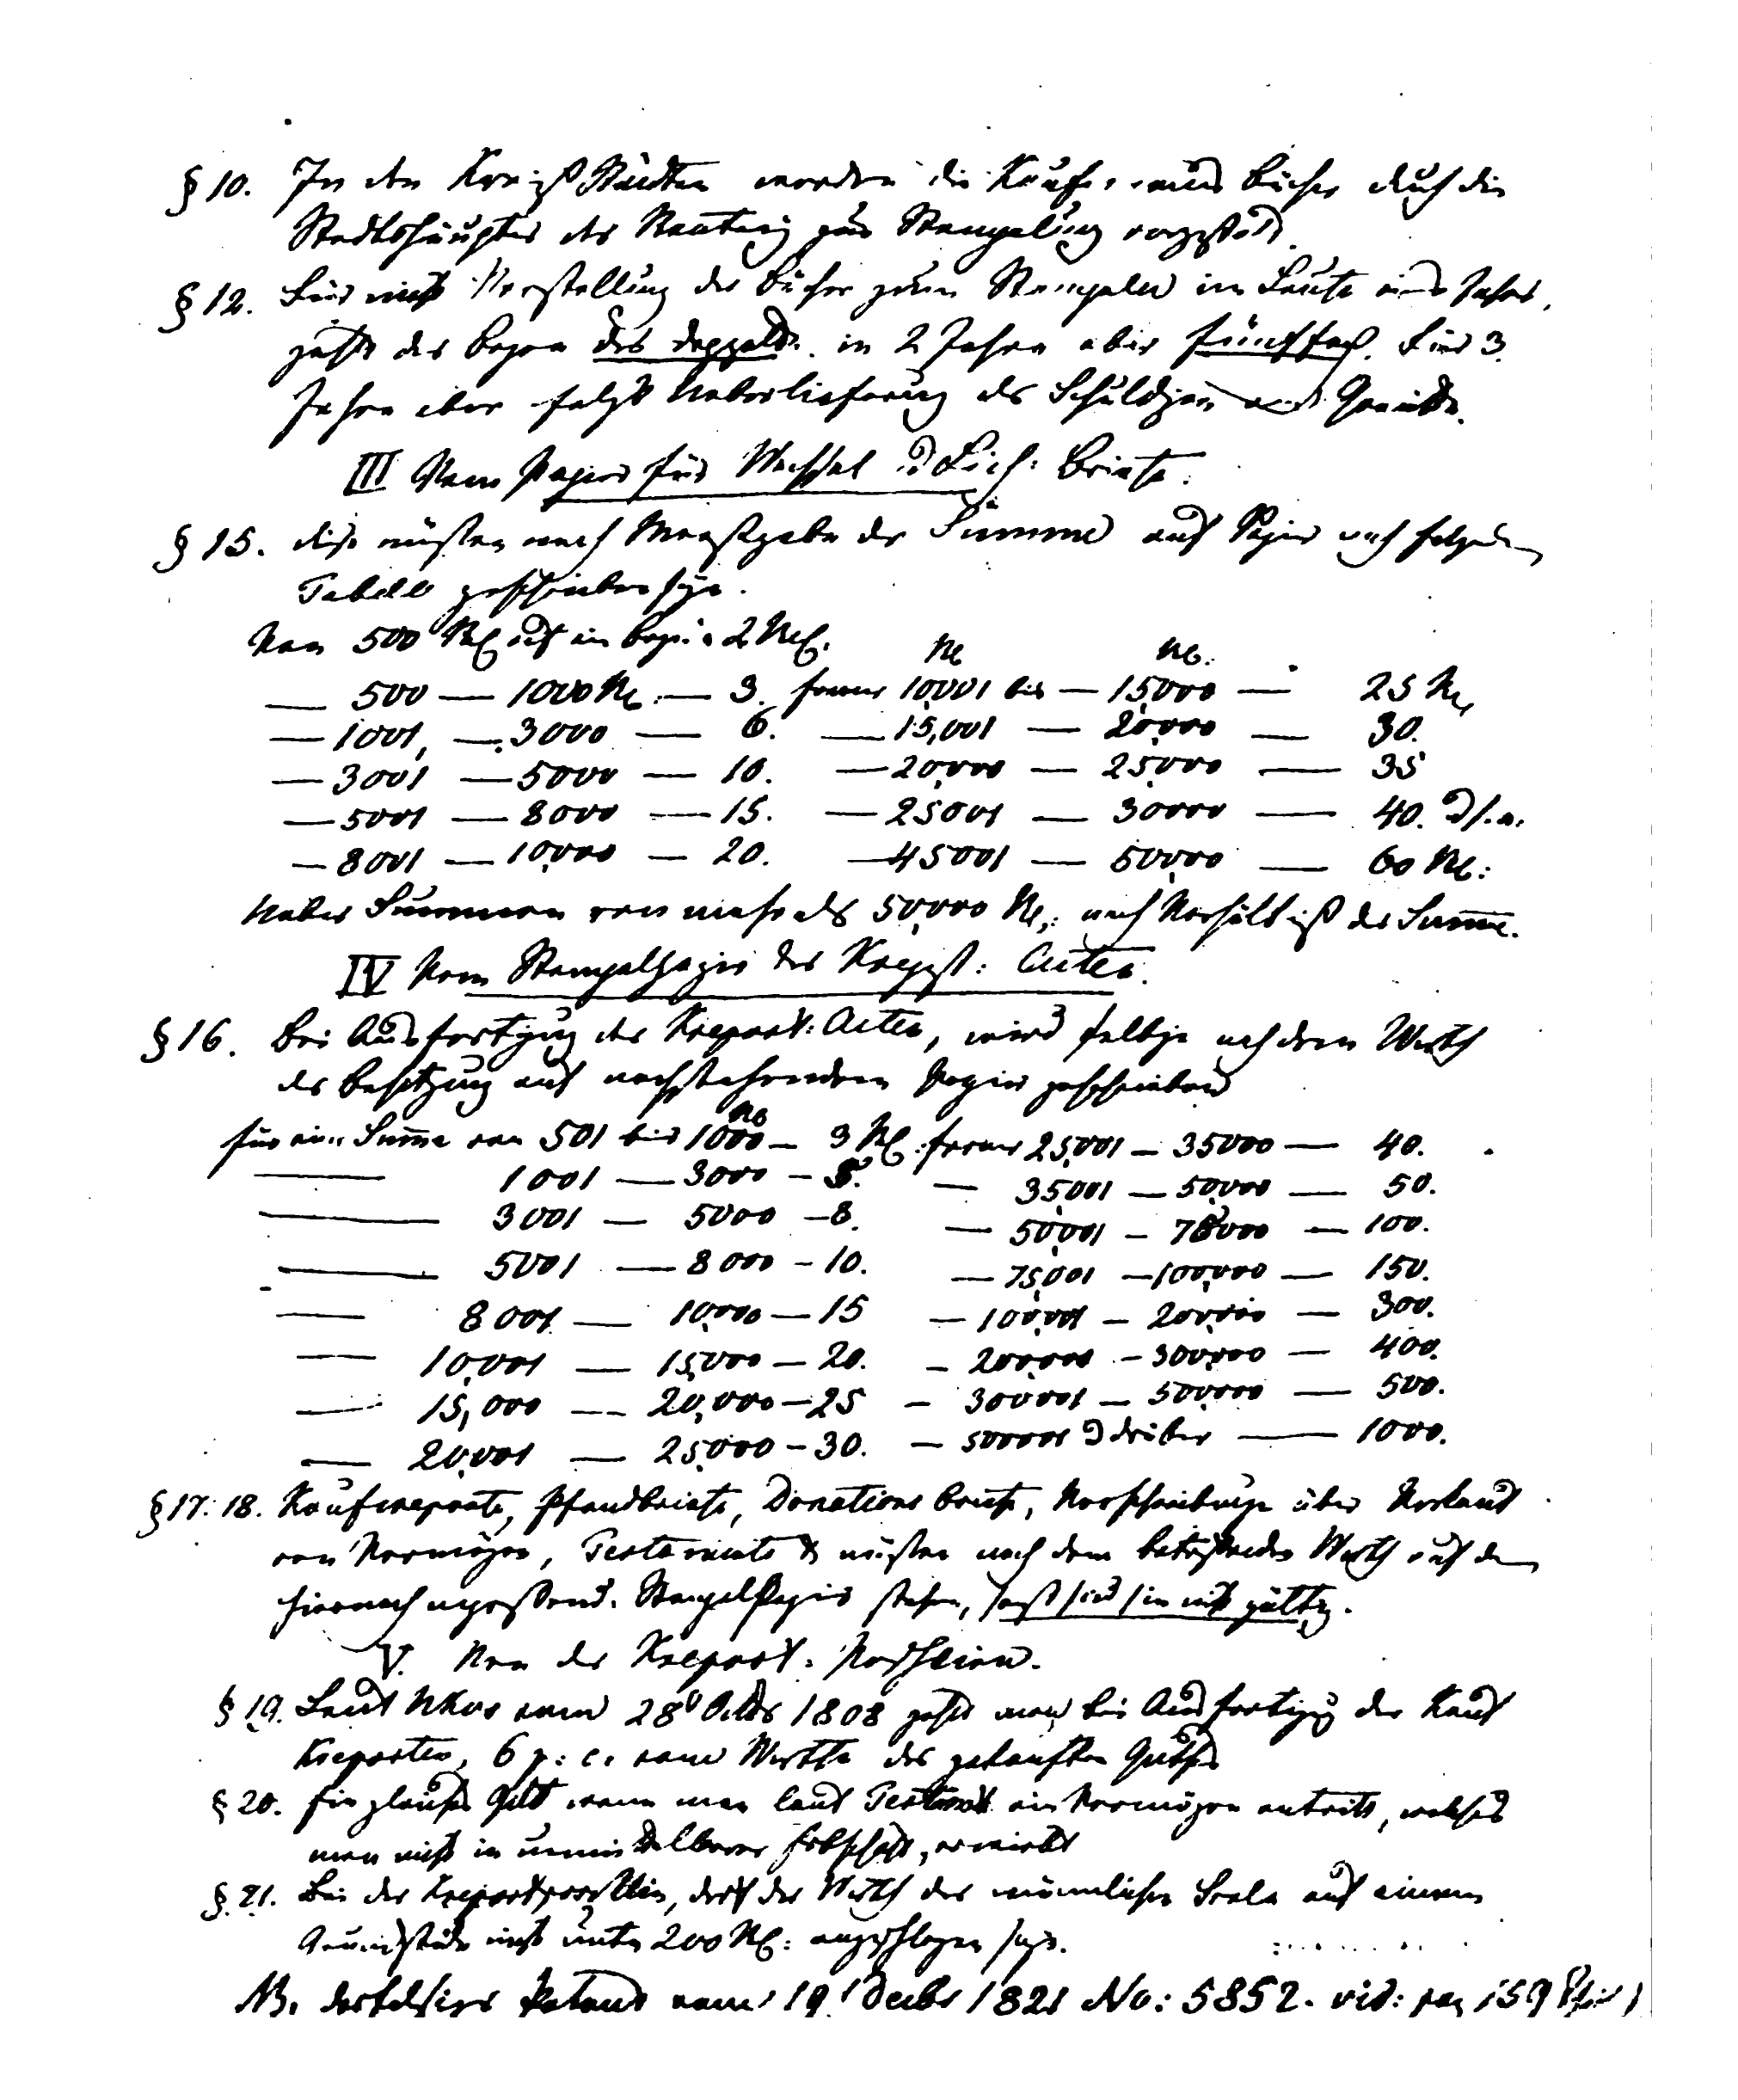 § 10. In den Kreiß Städten werden die Kaufmanns Bücher durch die
Stadtshäupter der Rentey zur Stempelung vorgestellt.
§ 12. Für nicht Vorstellung der Bücher zum Stempeln im Laufe eines Jahres,
zahlt der Bogen das doppelte. in 2 Jahren aber fünffach. Für 3.
Jahre aber folgt Ueberlieferung des Schuldigen ans Gericht.
III Vom Papier für Wechsel u Leih: Briefe.
§ 15. diese müßen nach Maaßgabe der Summe auf Papier nach folgender
Tabelle geschrieben seyn.
Von 500 Rbl auf ein Bogen 2 Rbl.
Rbl Rbl.
— 500 — 1000 Rbl. — 3. ferner 10,001 bis — 15,000 — 25 Rbl
— 1001, — 3000 — 6. — 15,001 — 20,000 — 30.
— 3001 — 5000 — 10. — 20,000 — 25,000 — 35
— 5001 — 8000 — 15. — 25001 — 30000 — 40. u s. w.
— 8001 — 10,000 — 20. — 45001 — 50,000 — 60 Rbl:
Ueber Summen von mehr als 50,000 Rbl: nach Verhältniß der Summe.
IV Vom Stempelpapier der Krepost: Acten.
§ 16. Bei Ausfertigung der Krepost: Acten, wird selbige nach dem Werth
der Besitzung auf nachstehendem Papier geschrieben
Rb
für eine Summe von 501 bis 1000 — 3 Rbl. ferner 25,001 — 35000 — 40.
— 1001 — 3000 — 5. — 35,001 — 50,000 — 50.
— 3001 — 5000 — 8. — 50,001 — 75000 — 100.
— 5001 — 8000 — 10. — 75,001 — 100,000 — 150.
— 8001 — 10,000 — 15 — 100,001 — 200,000 — 300.
— 10,001 — 15,000 — 20. — 200,000 — 300,000 — 400.
— 15,000 — 20,000 — 25 — 300001 — 500,000 — 500.
— 20,001 — 25,000 — 30. — 500001 u drüber — 1000.
§ 17: 18. Kaufkreposte, Pfandbriefe, Donations Briefe, Verschreibunge über Verkauf
von Vermögen, Testamente & müßen nach dem betreffenden Werth auf dem
hiernach Stempelpapier stehen, sonst sind sie nicht gültig.
V. Von der Krepost: Poschlien.
§ 19. Laut Ukas vom 28 Octbr 1808 zahlt man bei Ausfertigung der Kauf
Kreposten, 6 p: c. vom Werthe des gekauften Guthes
§ 20. Ein gleiches Gilt wenn man laut Testament ein Vermögen antritt, welches
man nicht in unmittelbarer Erbschaft, erwirbt
§. 21. Bei der Krepostposchlin, darf der Werth der männlichen Seele auf einem
Grundstücke nicht unter 200 Rbl: angeschlagen seyn.
NB. Patent vom 19 Decbr 1821 No: 5852. vid: pag 159